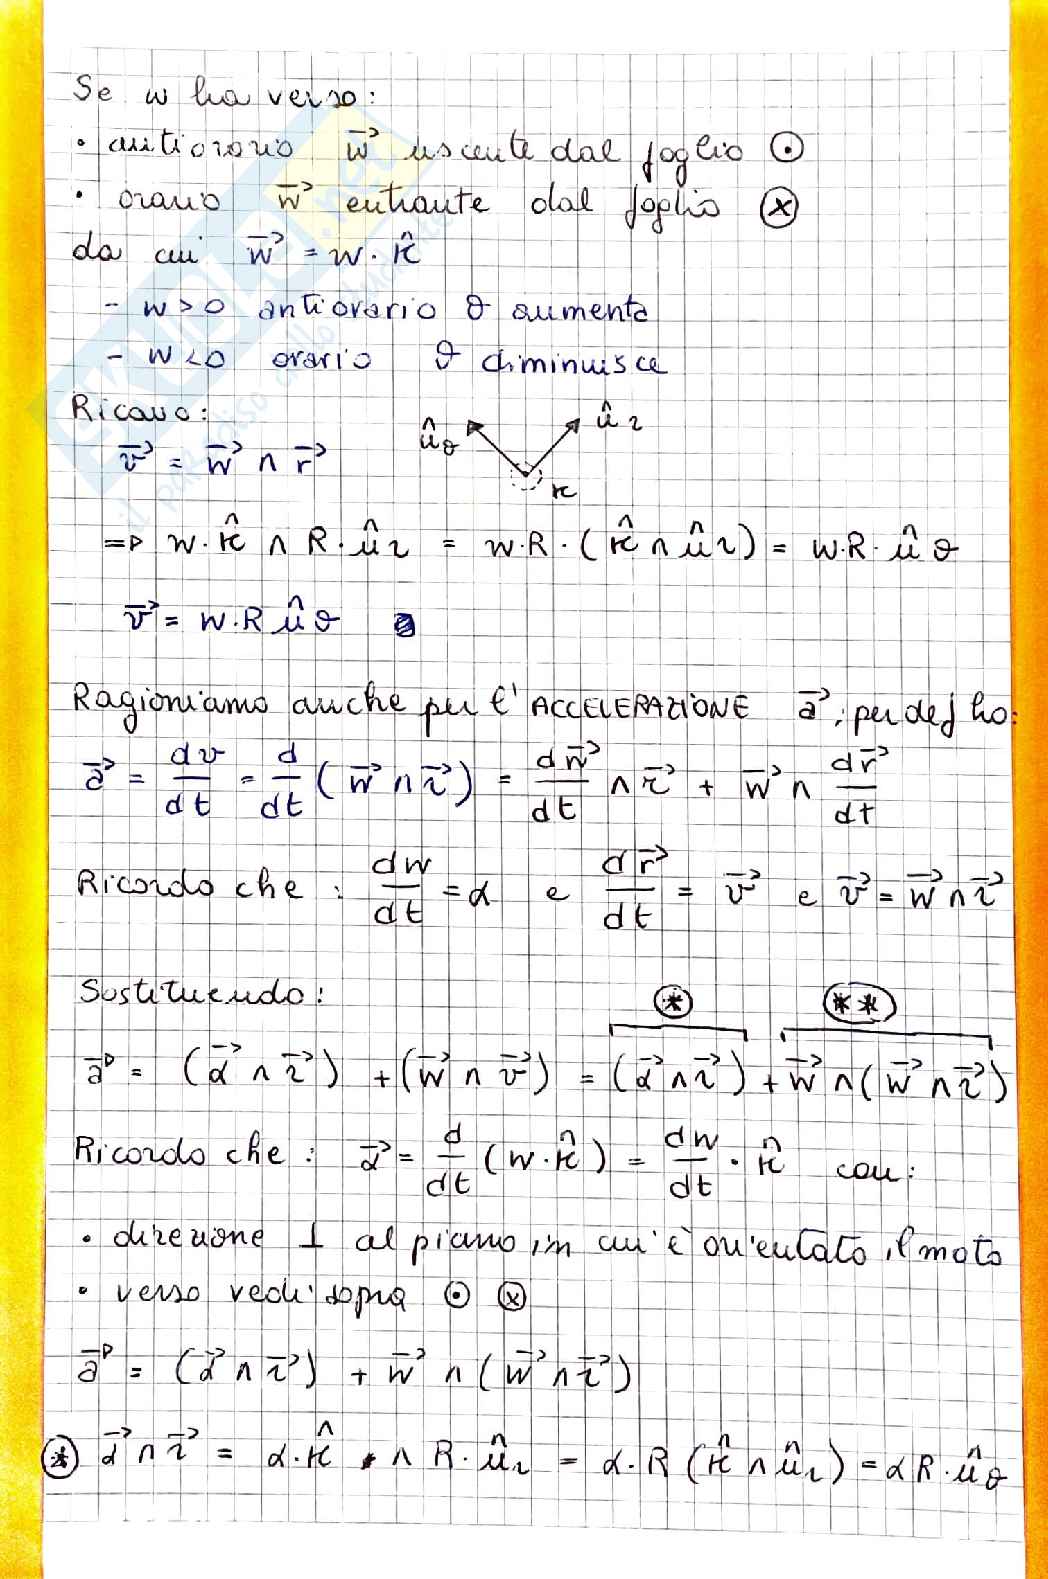 Se w ha verso:
• antiorario w⃗ uscente dal foglio ⊙
• orario w⃗ entrante dal foglio ⊗
da cui w⃗ = w · k̂
- w > 0 antiorario θ aumenta
- w < 0 orario θ diminuisce
Ricavo:
û_θ û_r
k
v⃗ = w⃗ ∧ r⃗
⇒ w · k̂ ∧ R · û_r = w · R · (k̂ ∧ û_r) = w · R · û_θ
v⃗ = w · R û_θ
Ragioniamo anche per l'ACCELERAZIONE a⃗, per def ho:
a⃗ = dv/dt = d/dt (w⃗ ∧ r⃗) = dw⃗/dt ∧ r⃗ + w⃗ ∧ dr⃗/dt
Ricordo che : dw/dt = α e dr⃗/dt = v⃗ e v⃗ = w⃗ ∧ r⃗
Sostituendo:
(*) (**)
a⃗ = (α⃗ ∧ r⃗) + (w⃗ ∧ v⃗) = (α⃗ ∧ r⃗) + w⃗ ∧ (w⃗ ∧ r⃗)
Ricordo che : α⃗ = d/dt (w · k̂) = dw/dt · k̂ con:
• direzione ⊥ al piano in cui è orientato il moto
• verso vedi sopra ⊙ ⊗
a⃗ = (α⃗ ∧ r⃗) + w⃗ ∧ (w⃗ ∧ r⃗)
(*) α⃗ ∧ r⃗ = α · k̂ ∧ R · û_r = α · R (k̂ ∧ û_r) = α R · û_θ